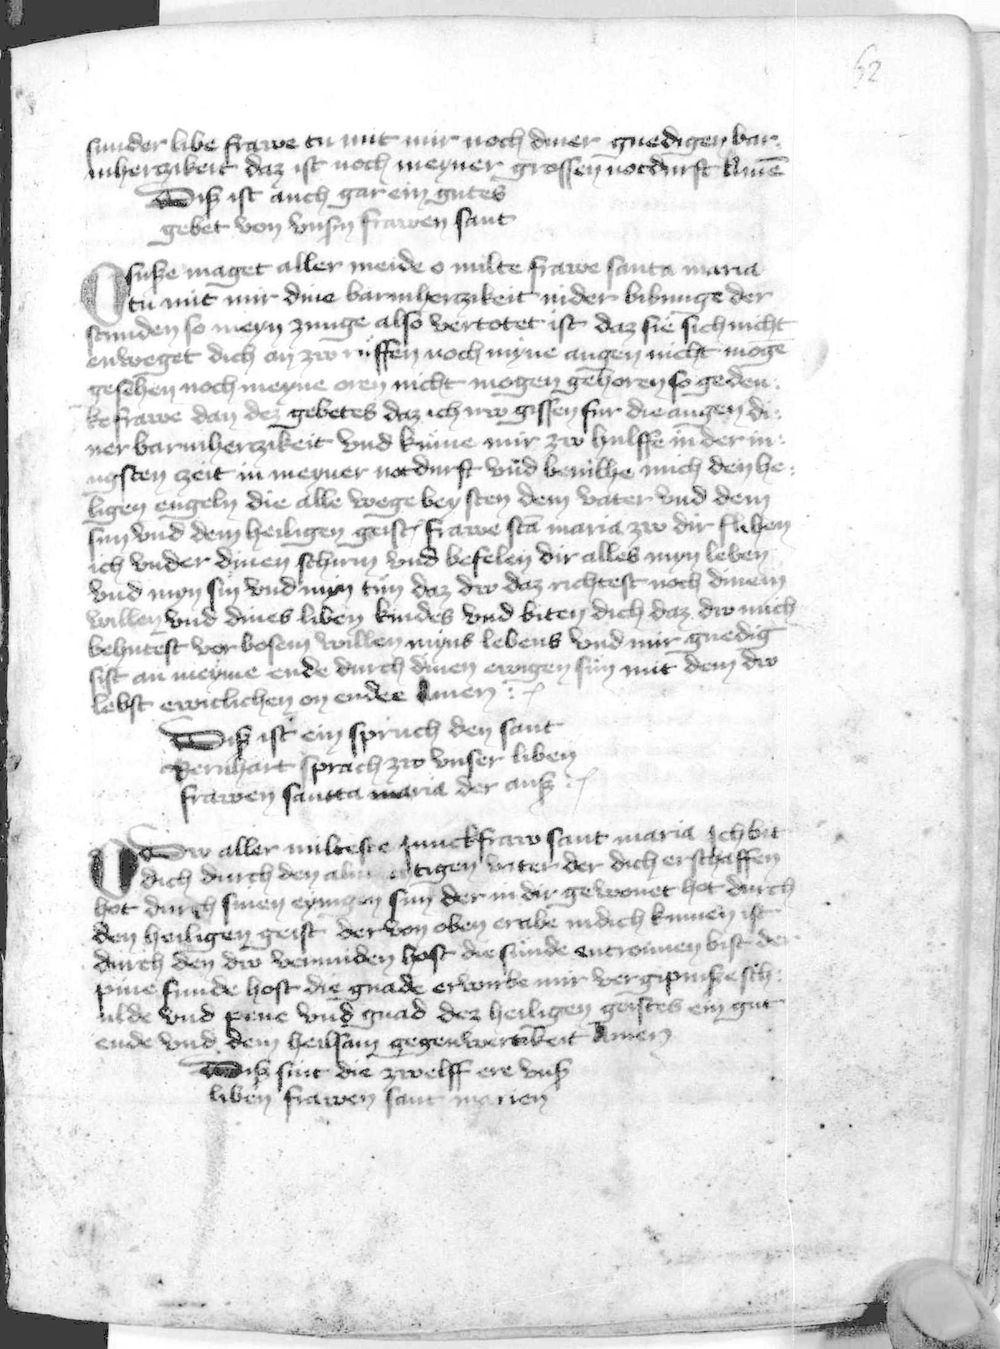 52
sunder libe frawe tu mit mir noch diner gnedigen bar:
mherzikeit daz ist noch meyner grossen notdurft Amē
Diß ist auch gar ein gutes
gebet von vnsn frawen sant
O suße maget aller meide o milte frawe santa maria
tu mit mir dine barmherzikeit in der bibunge der
stunden so meyn zunge also vertotet ist daz sie sich nicht
enweget dich an zw ruffen noch myne augen nicht moge
gesehen noch meyne oren nicht mogen gehoren so geden:
ke frawe dan dez gebetes daz ich nw gissen fur die augen di:
ner barmherzikeit vnd kume mir zw hulffe in der in:
ngsten zeit in meyner notdurft vnd beuilhe mich den he:
ligen engeln die alle wege bey sten dem vater vnd dem
sun vnd dem heiligen geist frawe sta maria zw dir fliben
ich vnder dinen schirm vnd befelen dir alles myn leben
vnd myn sin vnd myn tun daz dw daz richtest noch dinem
willen vnd dines liben kindes vnd biten dich daz dw mich
behutest vor bosem willen myns lebens vnd mir gnedig
sist an meyme ende durch dinen ewigen sun mit dem dw
lebst ewiclichen on endee Amen
Diß ist ein spruch den sant
Bernhart sprach zw vnser liben
frawen santta maria der auß
O Dw aller milteste junckfraw sant maria Ich bit
dich durch den alm tigen vater der dich erschaffen
hot durch sinen eynigen sun der in dir gewonet hot durch
den heiligen geist der von oben erabe in dich kumen ist
durch den dw verminden host die sunde entrounen bist der
pine funde host die gnade erwirbe mir vergipniße sch:
ulde vnd pene vnd gnad dez heiligen geistes ein gut
ende vnd dem heilsam gegenwertikeit Amen
Diß sint die zwelff ere vnß
liben frawen sant marien